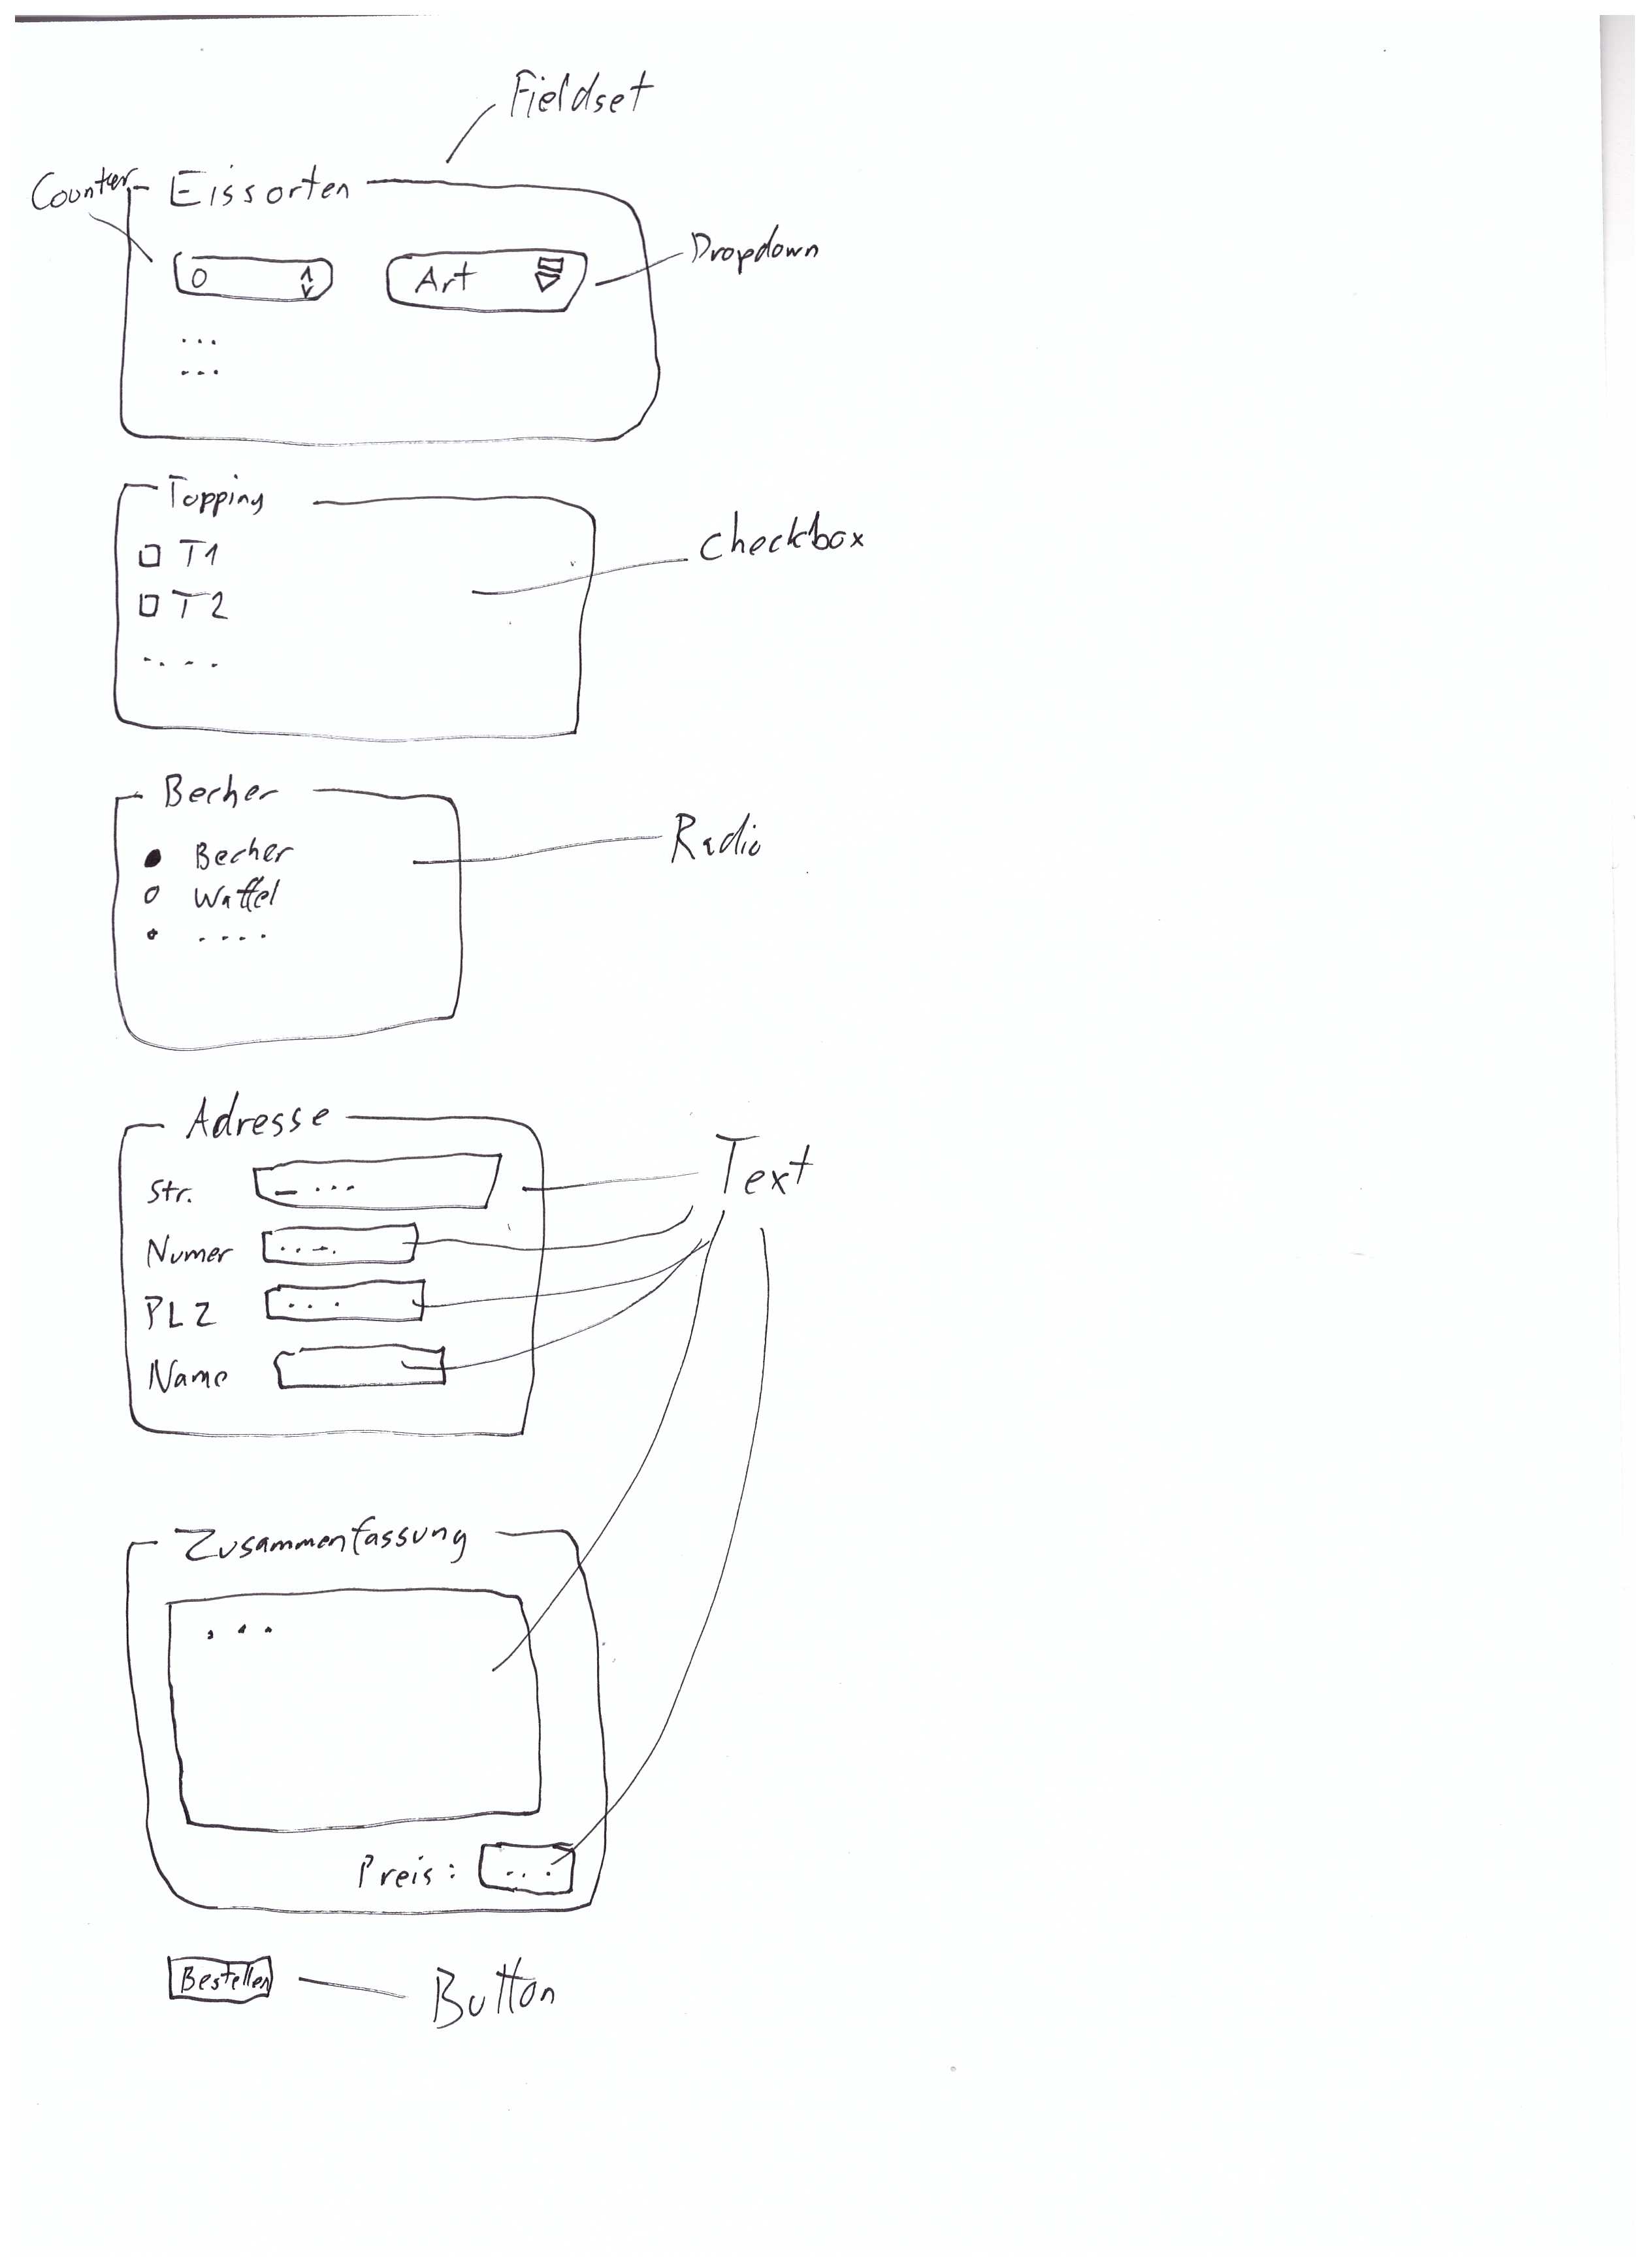 Fieldset
Counter
Eissorten
0
Art
Dropdown
...
...
Topping
T1
checkbox
T2
....
Becher
Becher
Radio
Waffel
....
Adresse
Text
Str.
_ ...
Numer
....
PLZ
...
Name
Zusammenfassung
...
Preis: ...
Bestellen
Button